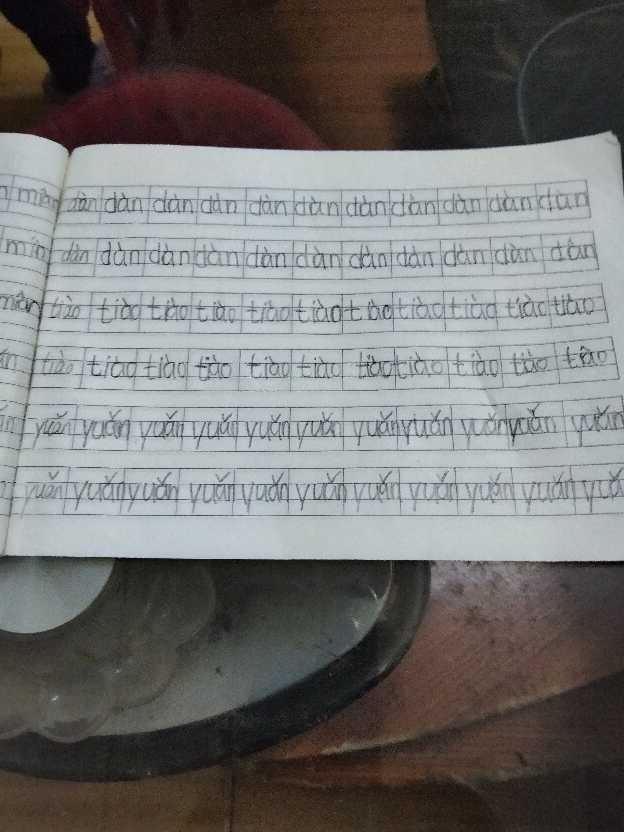 mián dàn dàn dàn dàn dàn dàn dàn dàn dàn dàn dàn
mín dàn dàn dàn dàn dàn dàn dàn dàn dàn dàn dàn
mián tiào tiào tiào tiào tiào tiào tiào tiào tiào tiào tiào
tiào tiào tiào tiào tiào tiào tiào tiào tiào tiào tiào
yuǎn yuǎn yuǎn yuǎn yuǎn yuǎn yuǎn yuǎn yuǎn yuǎn yuǎn
yuǎn yuǎn yuǎn yuǎn yuǎn yuǎn yuǎn yuǎn yuǎn yuǎn yuǎ